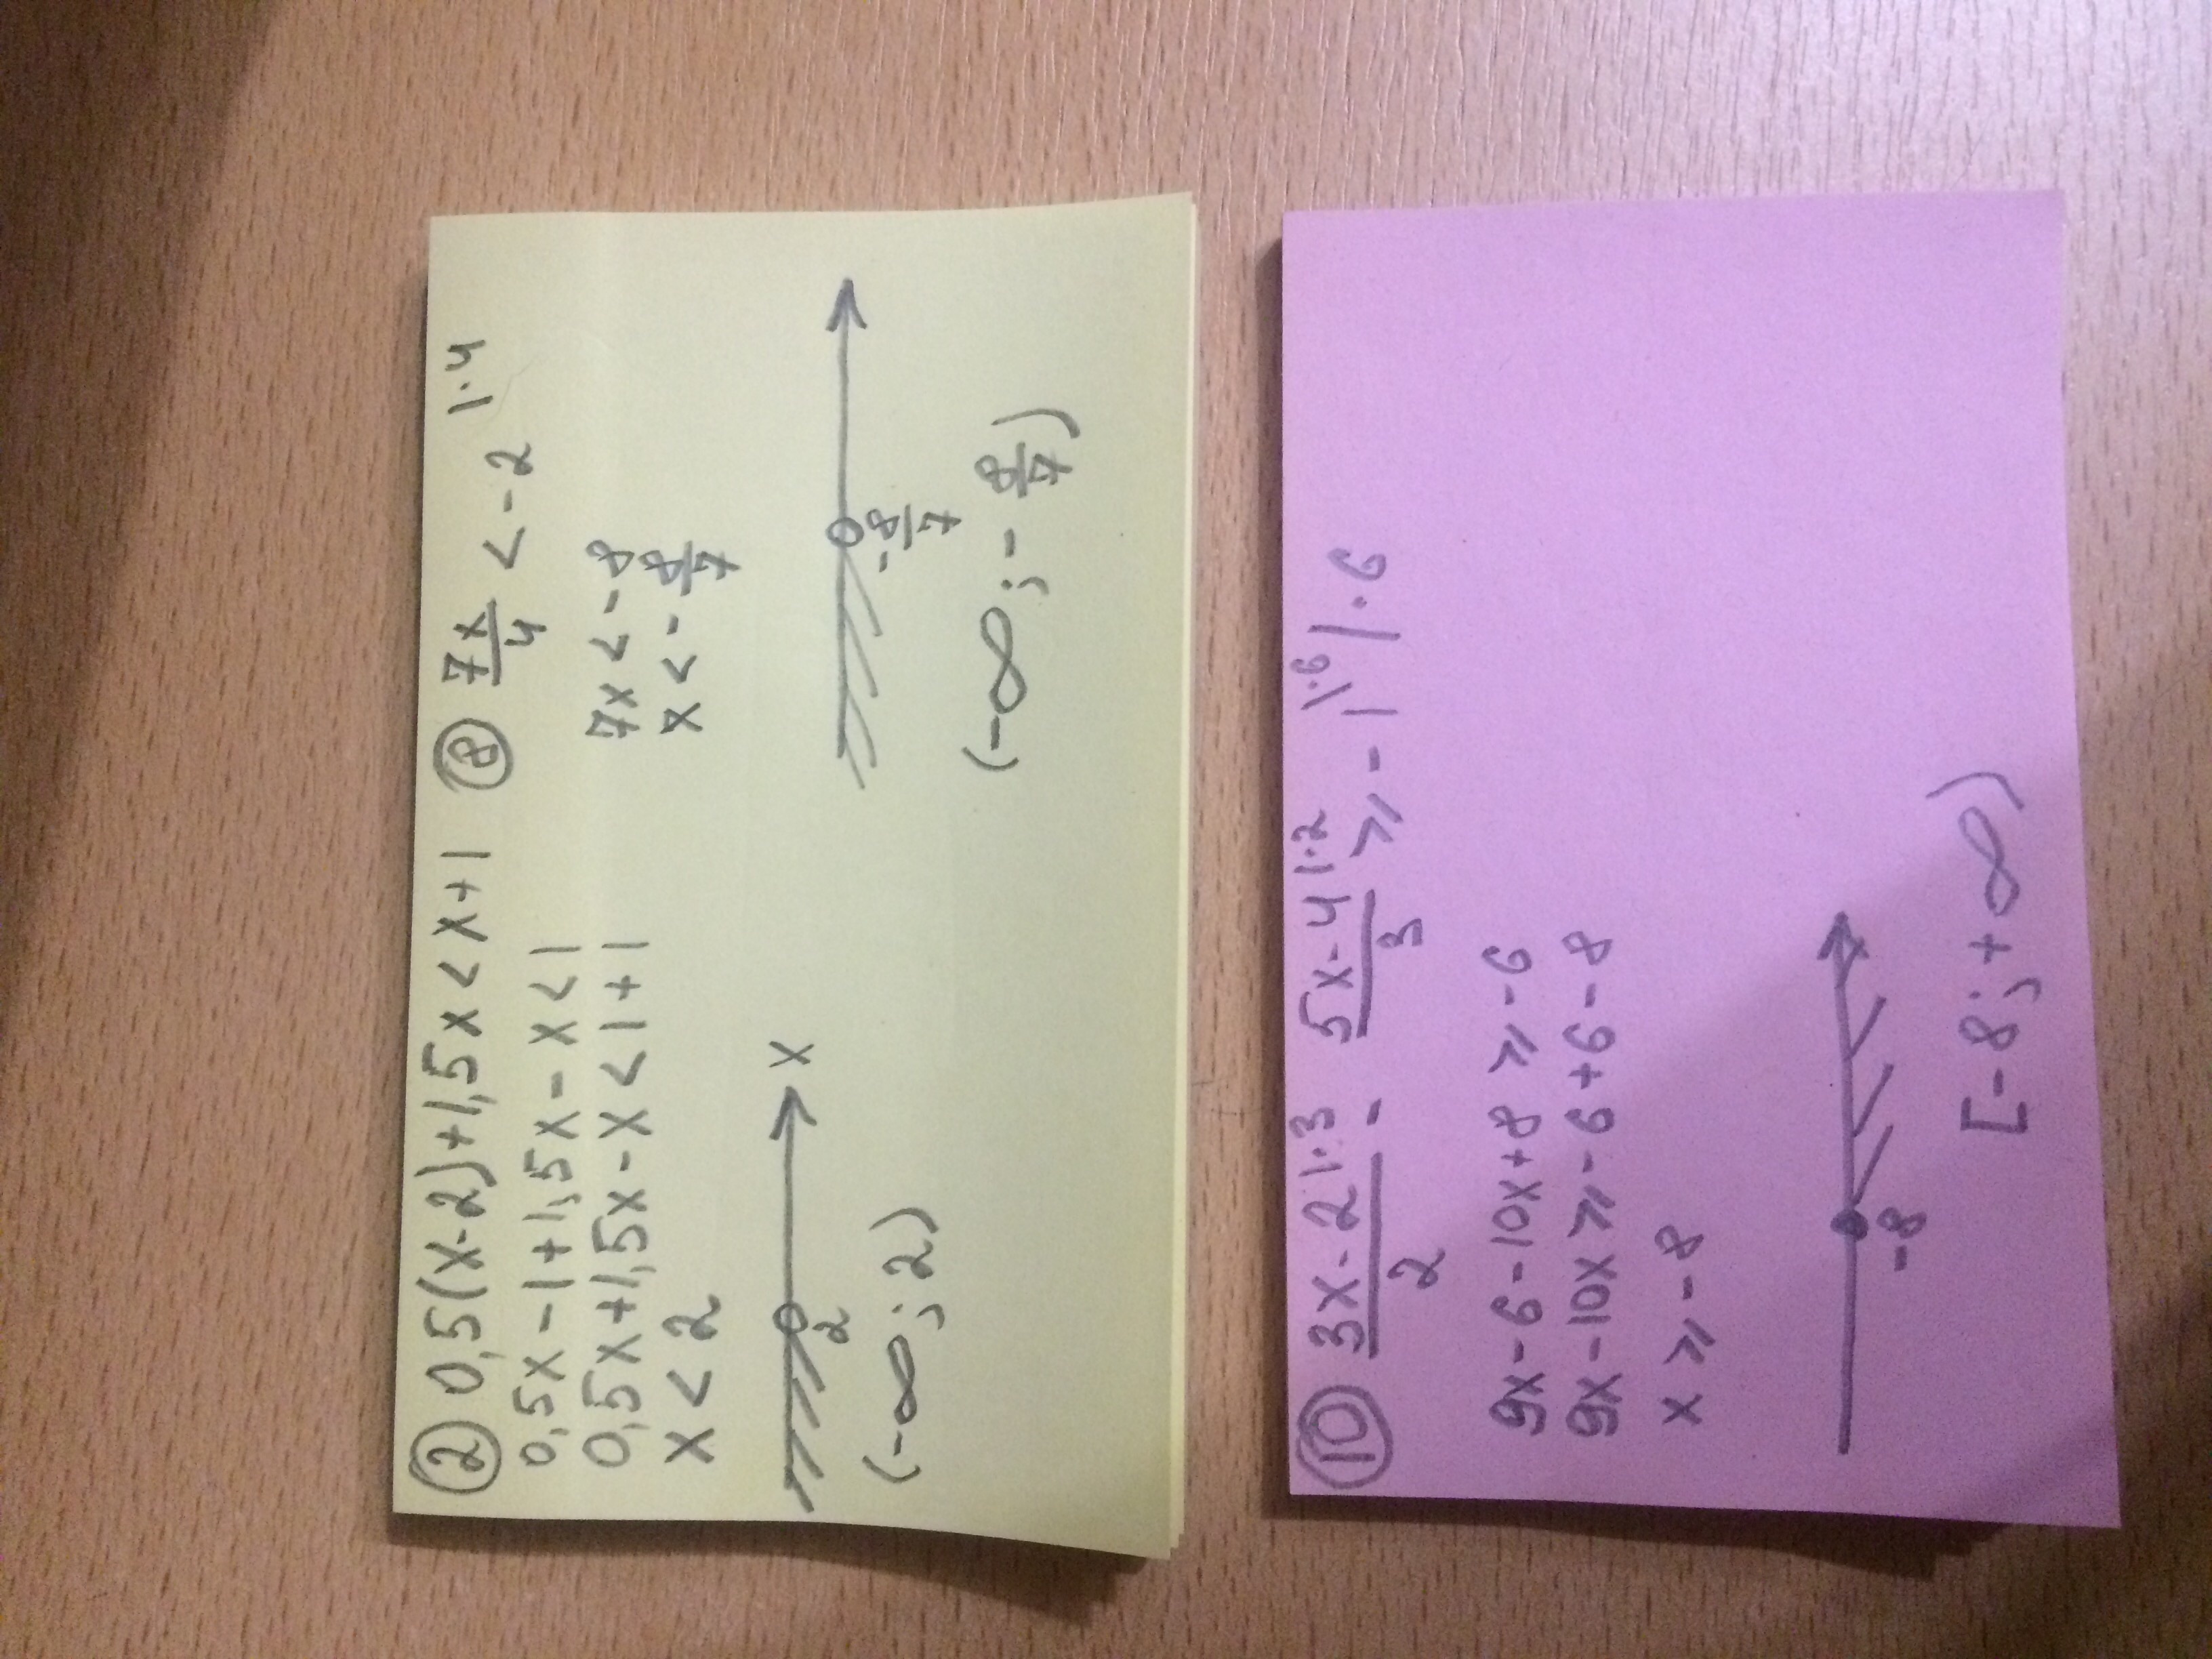 ② 0,5(x-2)+1,5x<x+1
0,5x-1+1,5x-x<1
0,5x+1,5x-x<1+1
x<2
x
2
(-∞;2)
⑧ 7x/4 < -2 |·4
7x<-8
x<-8/7
-8/7
(-∞;-8/7)
⑩ 3x-2|·3/2 - 5x-4|·2/3 ⩾ -1|·6 /·6
9x-6-10x+8⩾-6
9x-10x⩾-6+6-8
x⩾-8
-8
[-8;+∞)